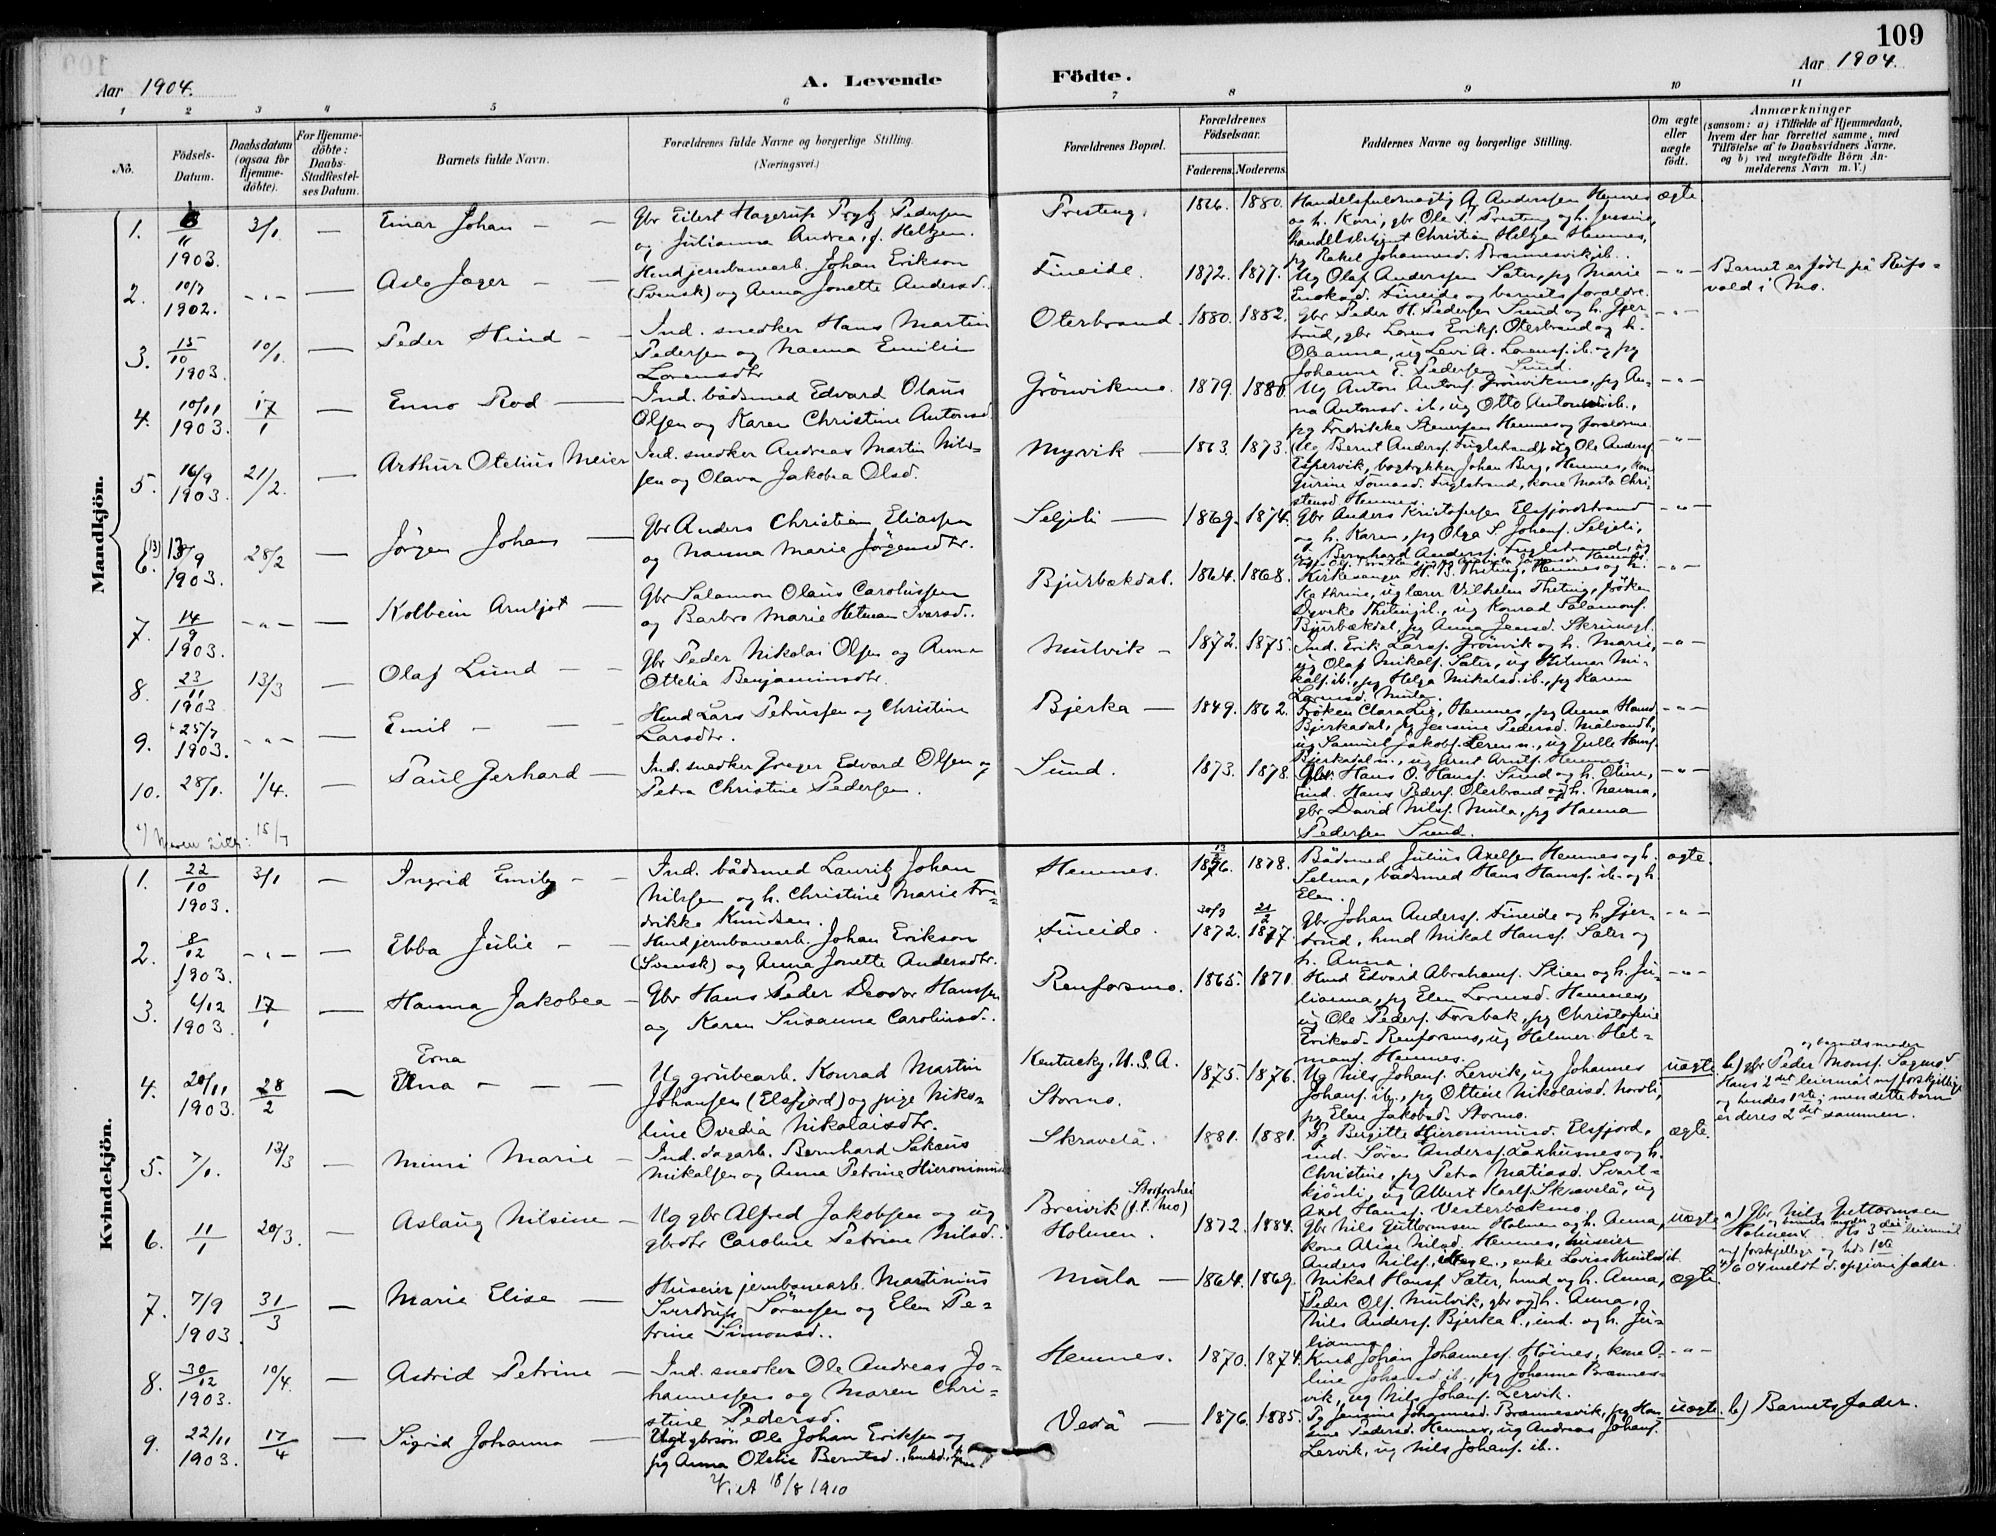 109
Aar 1904.
A. Levende Födte.
Aar 1904.
1 2 3 4 5 6 7 8 9 10 11
No.
Födsels-Datum.
Daabsdatum (ogsaa for Hjemme-döbte).
For Hjemme-döbte: Daabs-Stadfæstel-ses Datum.
Barnets fulde Navn.
Forældrenes fulde Navne og borgerlige Stilling.
(Næringsvei.)
Forældrenes Bopæl.
Forældrenes Födselsaar.
Faderens. Moderens.
Faddernes Navne og borgerlige Stilling.
Om ægte eller uægte födt.
Anmærkninger
(saasom: a) i Tilfælde af Hjemmedaab, hvem der har forrettet samme, med Tilföielse af to Daabsvidners Navne, og b) ved uægtefödte Börn An-melderens Navn m. V.)
Mandkjön.
1. 11 1903. 3/1 — Einar Johan — —
Gbr Eilert Hagerup Pedersen
og Julianna Andrea, f. Heltzen.
Presteng. 1880.
Handelsfuldmægtig A. Anderssen Hemnes
og h. Kari, gbr Ole P. Presteng og h. Jensine,
handelsbetjent Christian Heltzen Hemnes,
pg Rakel Johannesd. Brænnesvik ib.
ægte
2. 10/7 1902. -"- — Asle Jager — —
Husm jernbanearb. Johan Erikson
(Svensk) og Anna Jonette Andersd.
Fineide. 1872. 1877.
Ug Olaf Anderssen Sater, pg Marie
Fineide og barnets forældre.
-"-
Barnet er født på
vold i Mo.
3. 15/10 1903. 10/1 — Peder Hind — —
Ind. snedker Hans Martin
Pedersen og Nanna Emilie
Lorensdtr
Oterbrand. 1880. 1882.
gbr Peder H. Pedersen Sund og h. Gjer-
trud, gbr Lorens Eriks. Oterbrand og h.
Oleanna, ug Levi A. Lorens. ib. og pg
Johanna E. Pedersen Sund.
-"-
4. 10/11 1903. 17/1 — Enno Rod —
Ind. bådsmed Edvard Olaus
Olsen og Karen Christine Antonsd.
Grönvikmo. 1879. 1880.
Ug Anton Antons. Grönvikmo, pg An-
na Antonsd. ib., ug Otto Antons. ib.,
pg Fredrikke Steensen Hemnes og forældrene.
-"-
5. 16/9 1903. 21/2. — Arthur Otelius Meier
Ind. snedker Andreas Martin Nils-
sen og Olava Jakobea Olsd.
Myrvik — 1863. 1873.
Ug Bernt Anders. Fuglstrand, ug Ole Anders.
Espervik, bogtrykker Johan Berg, Hemnes, kone
Gurine Tomasd. Fuglstrand, kone Marta Chri-
stensd Hemnes.
-"-
6. (13) 13/9 1903. 28/2 — Jörgen Johan —
Gbr Anders Christian Eliassen
og Nanna Marie Jörgensdtr.
Seljeli — 1869. 1874.
Gbr Anders Kristofersen Elsfjordstrand
og h. Karen, pg Olga S. Johans. Seljeli,
ug Bernhard Anders. Fuglstrand, ug
-"-
7. 14/9 1903. -"- — Kolbein Arnljot —
Gbr Salamon Olaus Carolussen
og Barbro Marie Hetman Ivarsd.
Bjurbækdal. 1864. 1868.
Kirkesanger H. B. Theting, Hemnes og h.
Kathrine, ug lærer Vilhelm Theting, fröken
Dyveke Theting ib., ug Konrad Salamons.
Bjurbækdal, pg Anna Jensd. Skrinsgl.
-"-
8. 23/11 1903 13/3 — Olaf Lund — —
Gbr Peder Nikolai Olsen og Anna
Ottelia Benjaminsdtr.
Mulvik — 1872. 1875.
Ind. Erik Lars. Grönvik og h. Marie,
ug Olaf Mikals. Sater, ug Hilmar Mi-
kals. ib., pg Helga Mikalsd. ib., pg Karen
Lorensd. Mula.
-"-
9. 25/7 1903. -"- — Emil — —
Husm Lars Petrussen og Christine
Larsdtr.
Bjerka — 1849. 1862.
Fröken Clara Lie, Hemnes, pg Anna Hansd.
Bjerkadal, pg Jensine Pedersd. Målvand h.,
ug Samuel Jakobs. Leren n., ug Julle Hans.
Bjerkadal n., ug Arnt Arnts. Hemnes.
-"-
10. 28/1. 1/4. — Paul Gerhard —
Ind. snedker Jreger Edvard Olsen og
Petra Christine Pedersen.
Sund. 1873. 1878.
Gbr Hans O. Hans. Sund og h. Oline,
[ind. Hans Peders. Oterbrand og] h. Nanna,
gbr David Nils. Mula, pg Hanna
Pedersen Sund.
-"-
15/7
Kvindekjön.
1. 22/10 1903. 3/1 — Ingrid Emily — —
Ind. bådsmed Lauritz Johan
Nilssen og h. Christine Marie Fre-
drikke Knudsen.
Hemnes. 1876. 1878.
Bådsmed Julius Axelsen Hemnes og h.
Selma, bådsmed Hans Hans. ib. og h.
Elen.
ægte.
2. 8/12 1903. -"- — Ebba Julie — —
Husm jernbanearb. Johan Erikson
(Svensk) og Anna Jonette Andersdtr.
Fineide. 30/9 1872. 21/2 1877.
Gbr Johan Anders. Fineide og h. Gjer-
trud, husm Mikal Hans. Sater og
h. Anna.
-"-
3. 4/12 1903. 17/1 — Hanna Jakobea —
Gbr Hans Peder Deodor Hanssen
og Karen Susanna Carolinsd.
Renforsmo. 1865. 1871
Husm Edvard Abrahams. Stien og h. Ju-
lianna, pg Elen Lorensd. Hemnes,
ug Ole Peders. Forsbak, pg Christofine
Eriksd. Renforsmo, ug Helmer Het-
mans. Hemnes.
-"-
4. 20/11 1903. 28/2 — Erna
Elna — — —
Ug grubearb. Konrad Martin
Johansen (Elsfjord) og pige Niko-
line Ovedia Nikolaisdtr.
Kentucky, U.S.A.
Stormo.
1875. 1876.
Ug Nils Johans. Lervik, ug Johannes
Johans. ib., pg Ottine Nikolaisd. Nordli,
pg Eline Jakobsd. Stormo.
uægte
og barnets moder
b) gbr Peder Mons. Sagmo
Hans 2det leiermål m/ forskjellige
og hendes 1ste; men dette barn
er deres 2det sammen.
5. 7/1. 13/3 — Mimi Marie —
Ind. dagarb. Bernhard Sakæus
Mikalsen og Anna Petrine Hieronimus
Skravelå. 1881. 1881.
Pg Birgitte Hieronimusd. Elsfjord,
ind. Sören Anders. Laxhusmo og h.
Christine, pg Petra Matiasd. Svart-
kjönli, ug Albert Karls. Skravelå, ug
Axel Hans. Vesterbækmo.
ægte.
6. 11/1 20/3. — Aslaug Nilsine —
Ug gbr Alfred Jakobsen og ug
gbrdtr Caroline Petrine Nilsd.
Storforshei
Breivik (f. t. Mo)
Holmen.
1872. 1884.
Gbr Nils Guttormsen Holmen og h. Anna,
kone Alise Nilsd. Hemnes, huseier
Anders Nils. ib., enke Lovise ib.
uægte
a) Gbr Nils Guttormsen
Holmen og barnets moder. Hs 3die leiermål
m/ forskjellige og hds 1ste
4/6 04 meldt d. opgivne fader.
7. 7/9 1903. 31/3 — Marie Elise —
Huseier jernbanearb. Martinius
Sverdrup Sörensen og Elen Pe-
trine Simonsd.
Mula — 1864. 1869.
Mikal Hans. Sater, husm og h. Anna,
[Peder Ols. Mulvik, gbr og] h. Anna,
Nils Anders. Bjerka l., ind. og h. Ju-
lianna.
ægte.
8. 30/12 1903. 10/4. — Astrid Petrine —
Ind. snedker Ole Andreas Jo-
hannessen og Maren Chri-
stine Pedersd.
Hemnes. 1870. 1874.
Knud Johan Johannes. Höines, kone O-
line Johansd. ib., pg Johanna Brænnes-
vik, ug Nils Johans. Lervik.
-"-
9. 22/11 1903. 17/4 — Sigrid Johanna —
Ugt gbrsön Ole Johan Eriksen og
pg Anna Otelie Berntsd.
Viet 18/8 1910
Vedå — 1876. 1885.
Pg Jensine Johannesd. Brænnesvik, pg Han-
sine Pedersd. Hemnes, ug Andreas Johans.
Lervik, ug Nils Johans. ib.
uægte.
b) Barnets fader.